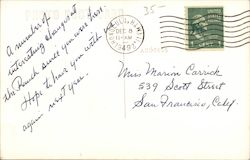 A number of
interesting changes at
the Ranch since you was here.
Hope to have you with
again next year.
35-
HONOLULU, HAWAII
DEC 8
11-AM
1949
Miss Marion Carrick
539 Scott Street
San Francisco, Calif.